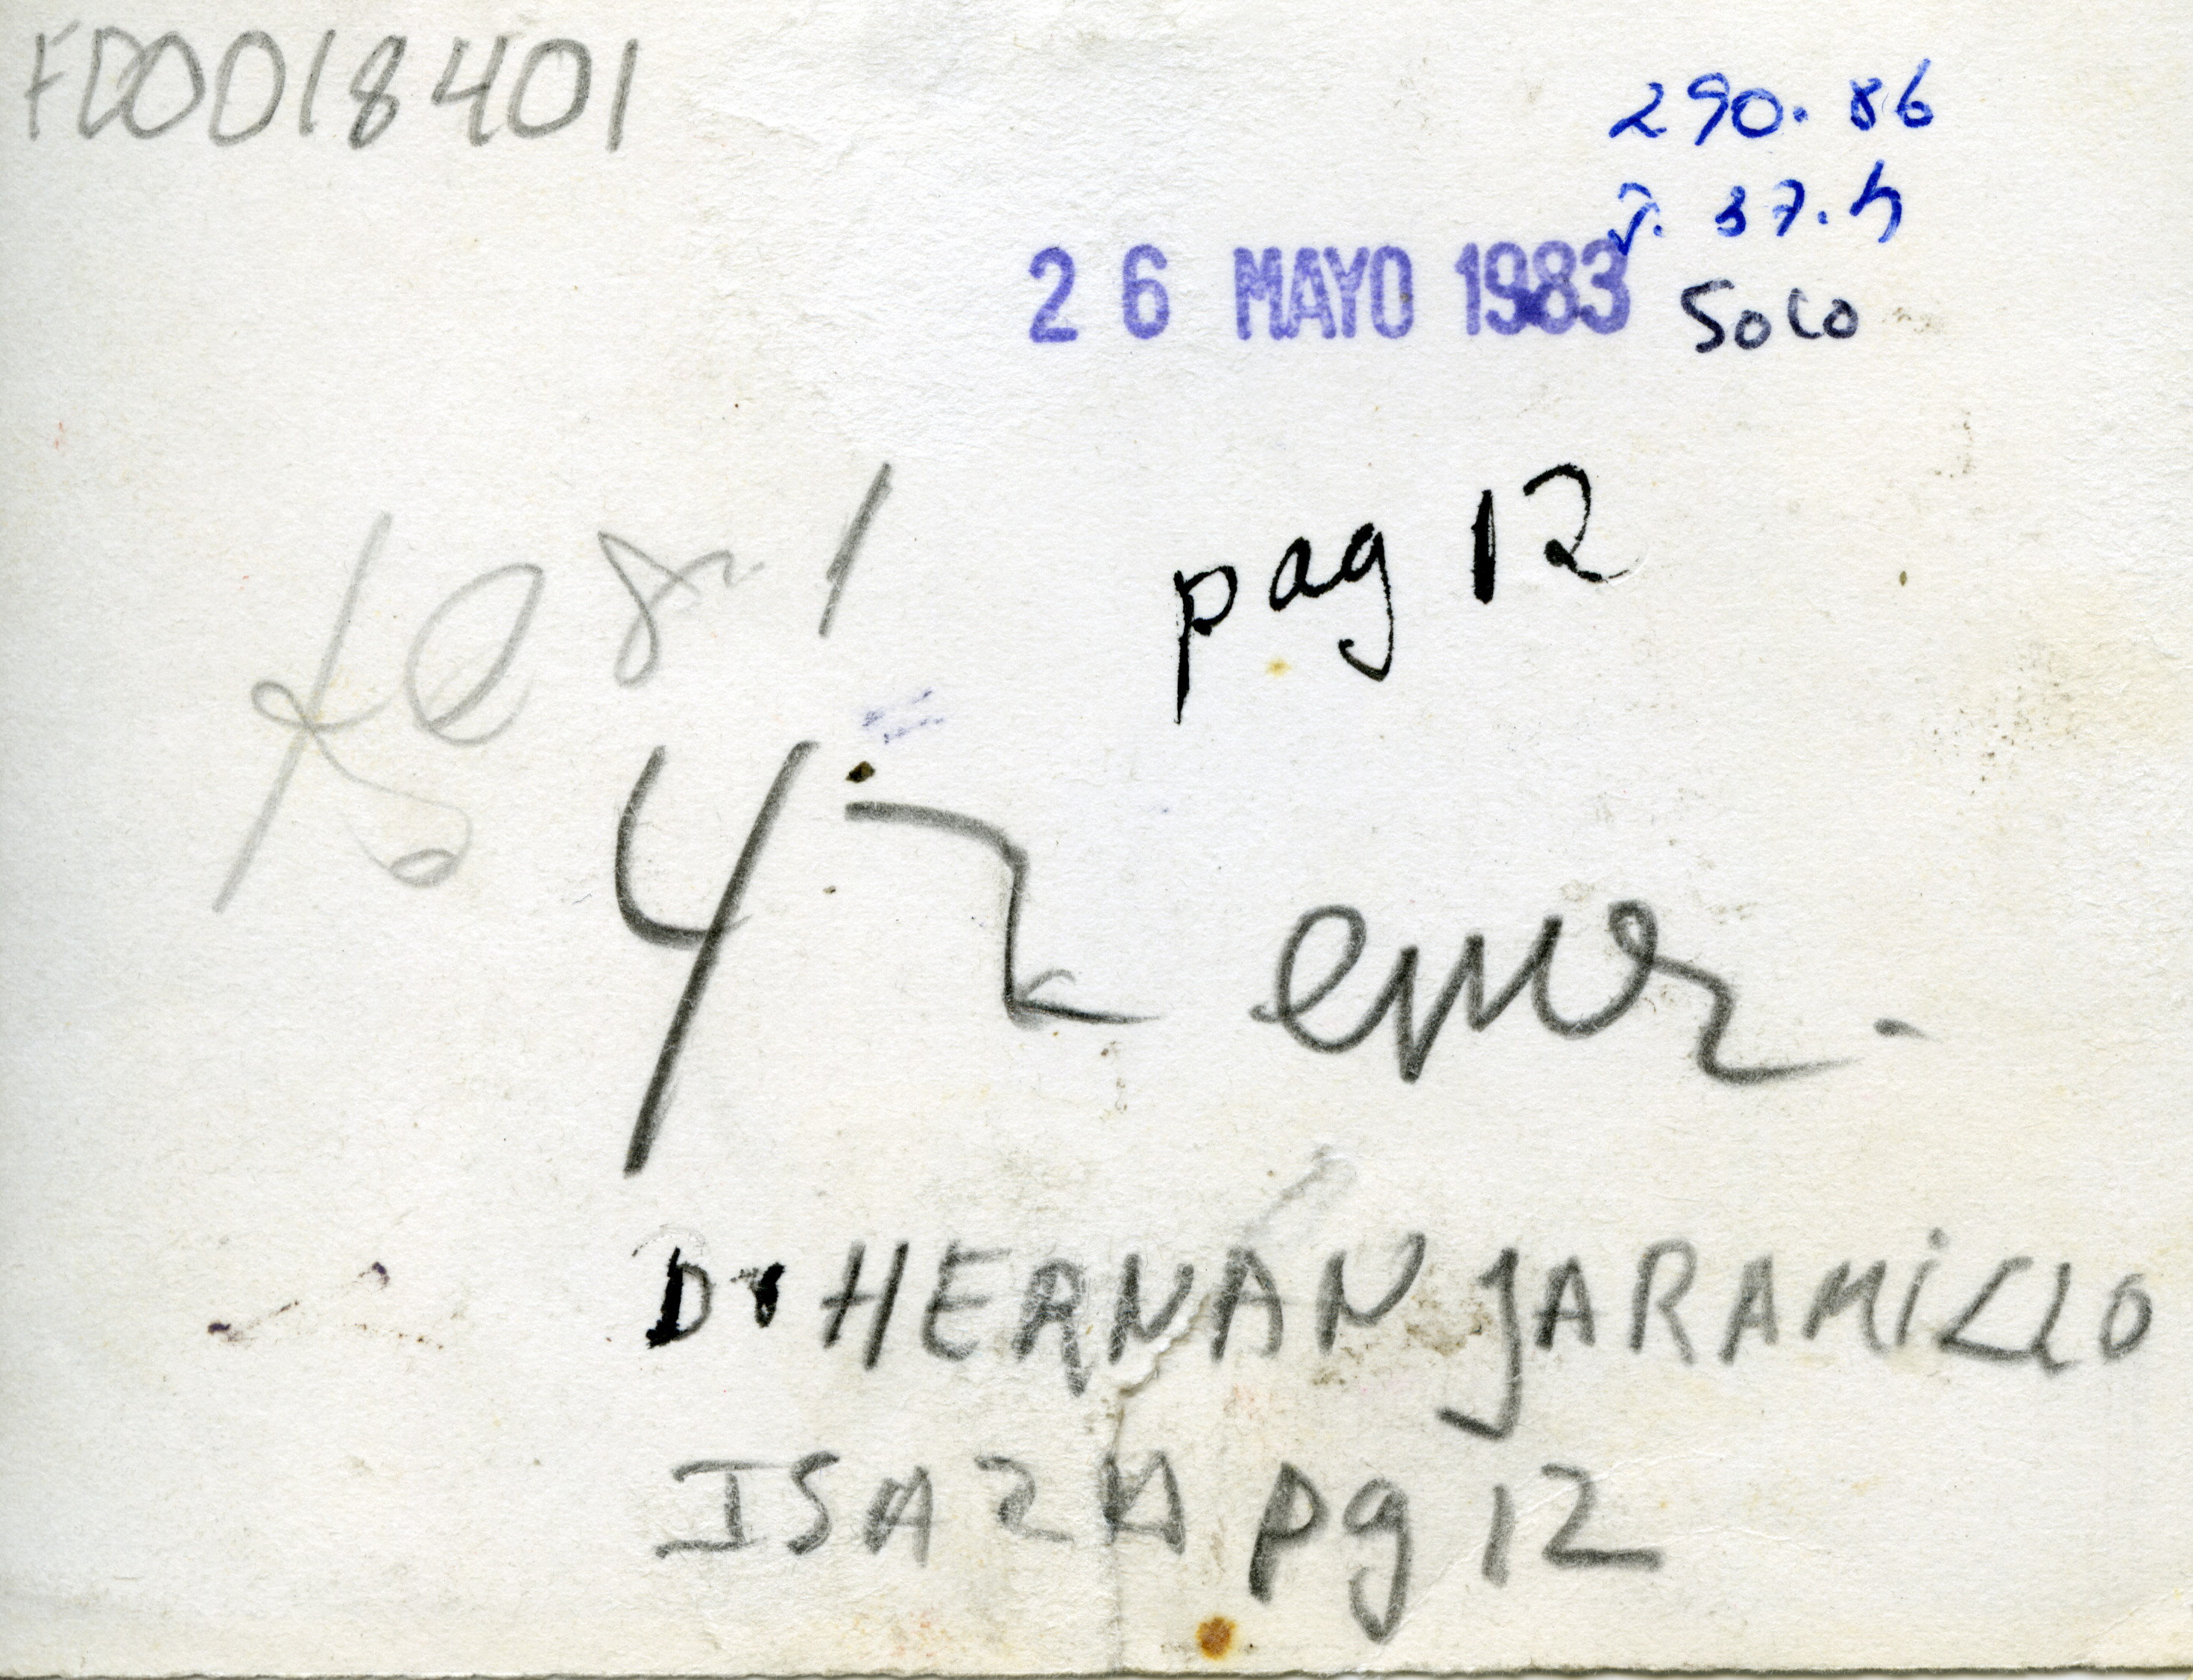 FD0018401
290.86
37.h
26 MAYO 1983
Solo
pag 12
4
Dr HERNÁN JARAMILLO
ISAZA pg 12